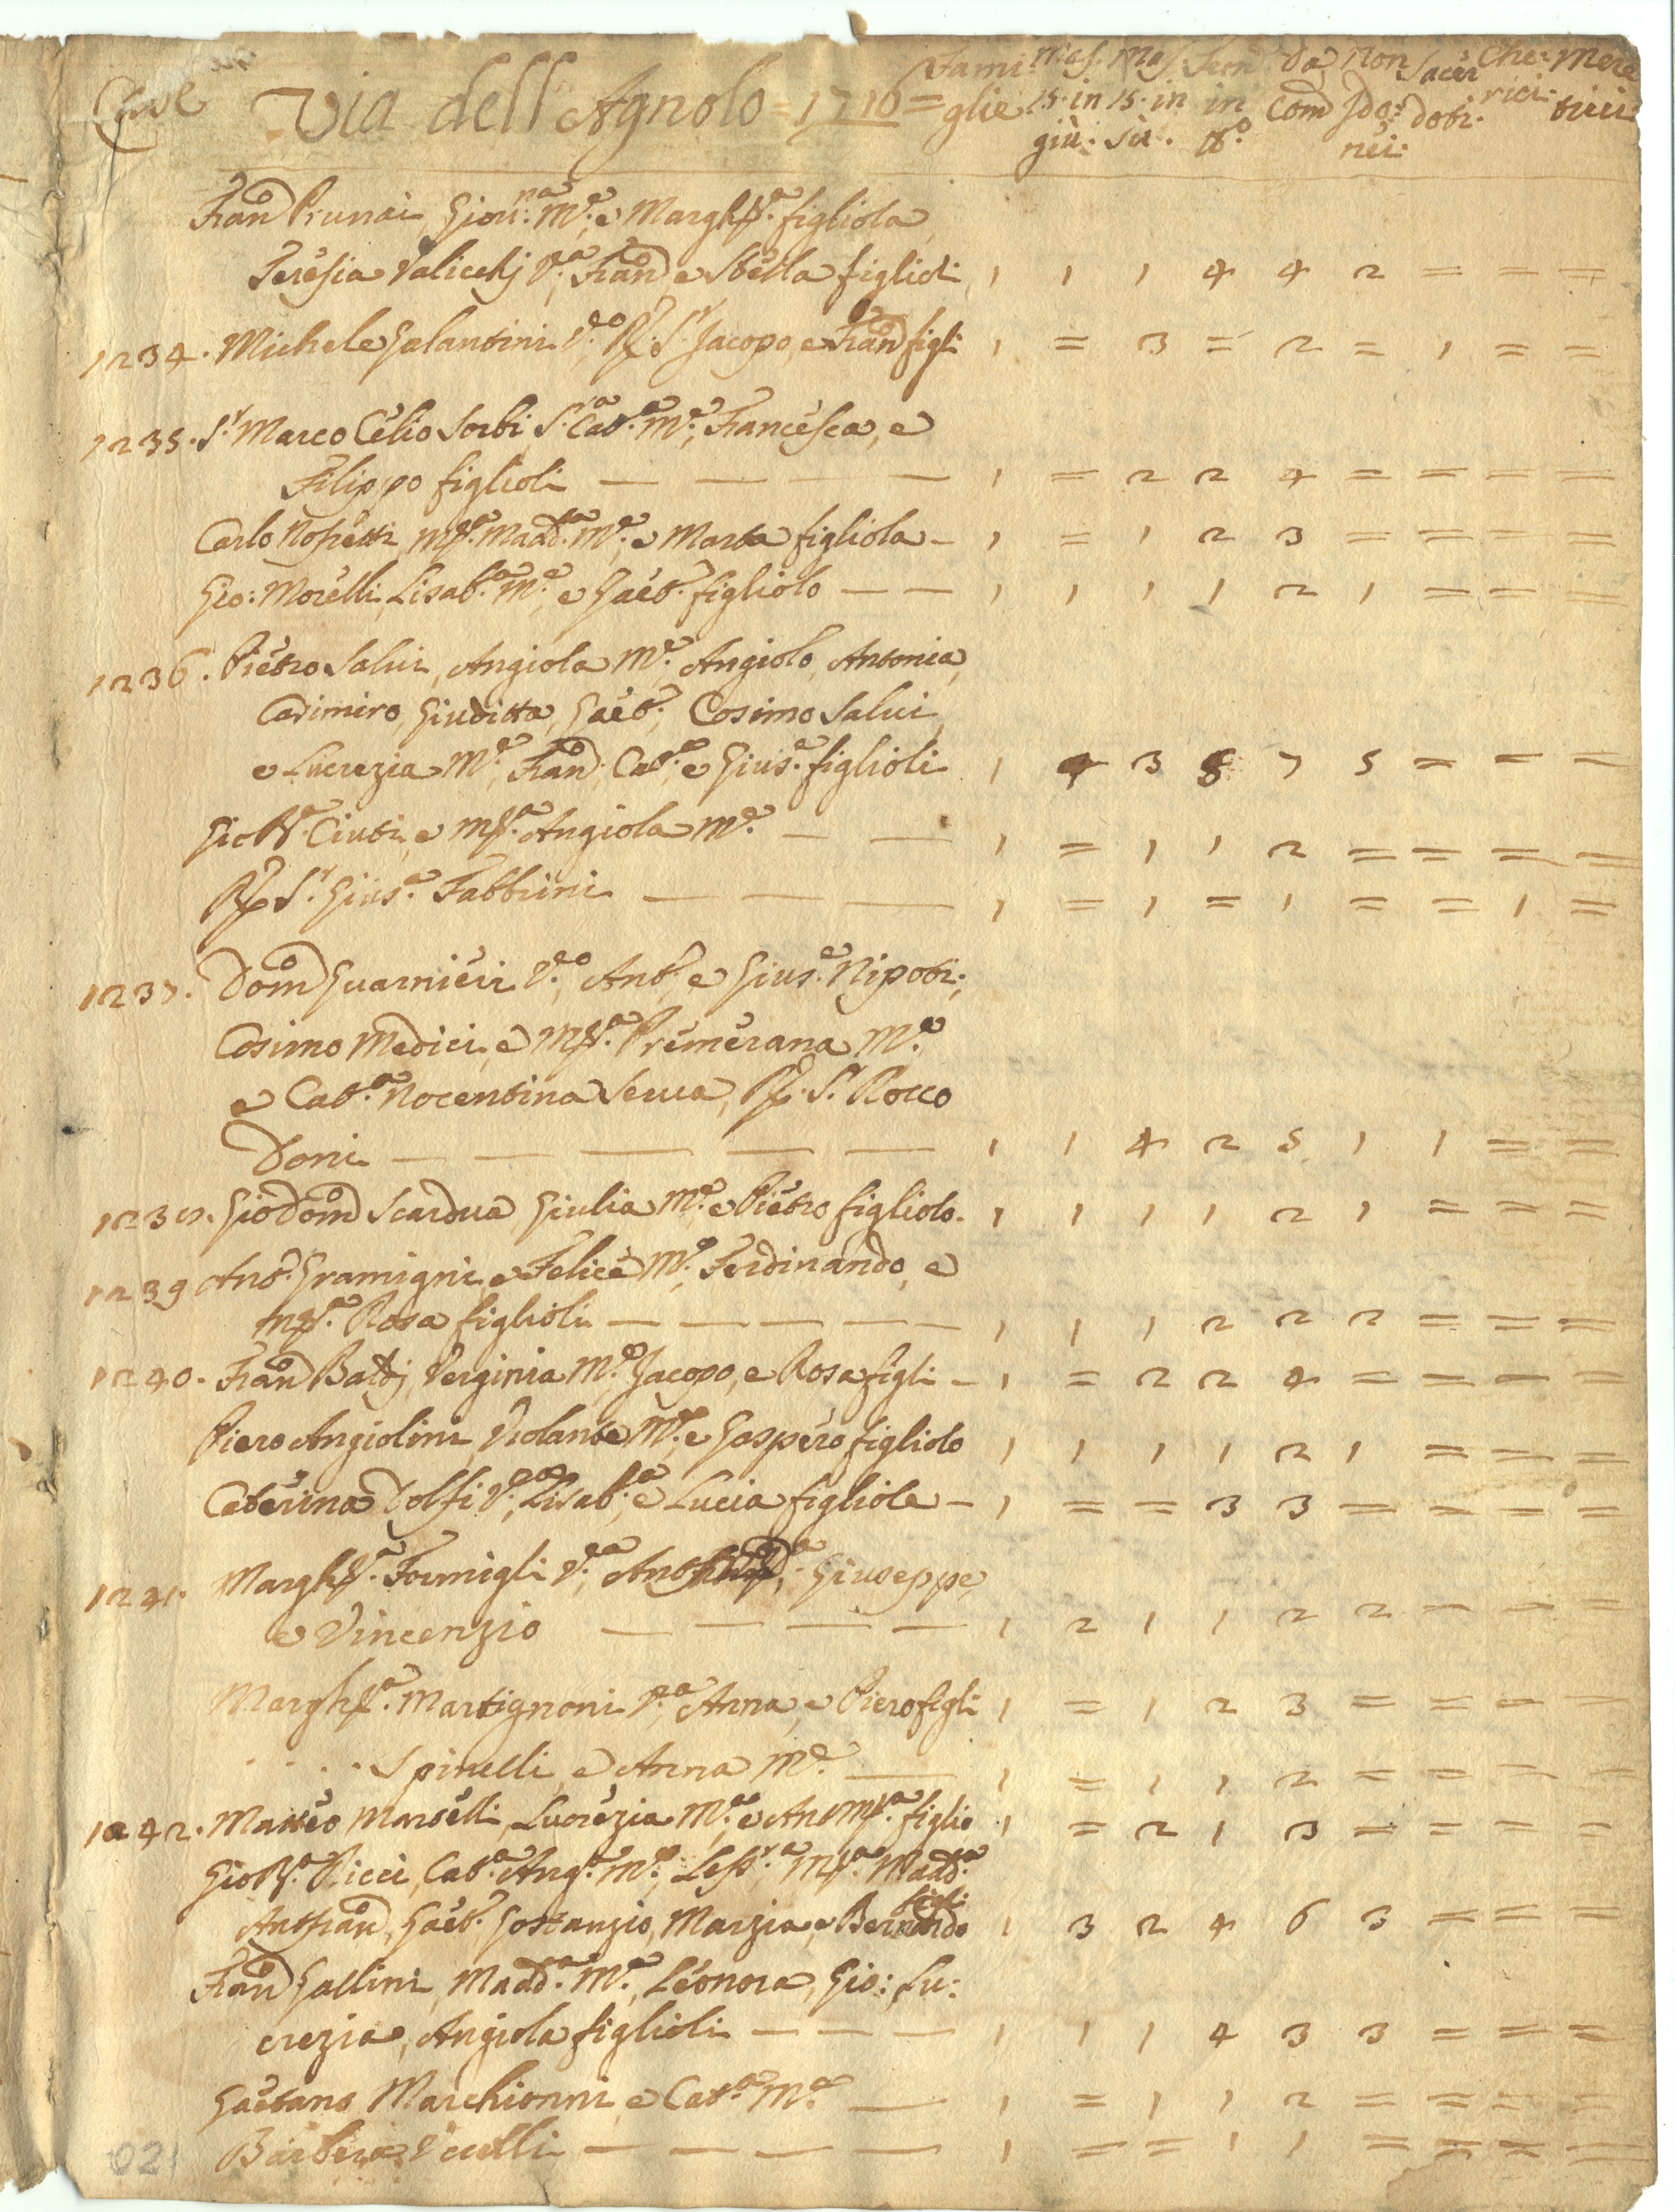 Case Via dell' Agnolo = 1710 = Fami: Mas. Mas. Fem. Da Non Sacer Che: Mere
glie 15. in 15. in in Com Ido: doti. rici: trici
giù. sù. nei:
Franco Prunai, Giovna: Me. e Margh. figliola,
Teresia Valicelj Va. Franco e Stella figlioli, 1 1 1 4 4 2 = = =
1234. Michele Galantini Vdo. R. Sr. Jacopo, e Franco figli 1 = 3 = 2 = 1 = =
1235. Sr. Marco Celio Sorbi, Sra. Cata. Me., Francesca, e
Filippo figlioli — — — — 1 = 2 2 4 = = = =
Carlo Me. e Marta figliola — 1 = 1 2 3 = = = =
Gio: Morelli, Lisaba. Me. e Gaeto. figliolo — — 1 1 1 1 2 1 = = =
1236. Pietro Salvi, Angiola Me. Angiolo, Antonia,
Casimiro, Giuditta, Gaeto. Cosimo Salvi
e Lucrezia Me. Franco. Cata. e Giuse. figlioli 1 4 3 8 7 5 = = =
Gio Bta. Ciuti, e Ma. Angiola Me. — — 1 = 1 1 2 = = = =
R. Sr. Giuse. Fabbrini — — — 1 = 1 = 1 = = 1 =
1237. Domco Guarnieri Vdo. Anto. e Giuse. Nipoti;
Cosimo Medici, e Ma. Premerana Me.
e Cata. Nocentina Serva, R. Sr. Rocco
Doni — — — — — 1 1 4 2 5 1 1 = =
1238. Gio Domco Scardua Giulia Me. e Pietro figliolo. 1 1 1 1 2 1 = = =
1239 Anto. Gramigni, e Felice Me. Ferdinando, e
Ma. Rosa figlioli — — — — — 1 1 1 2 2 2 = = =
1240. Franco Baldj, Verginia Me. Jacopo, e Rosa figli — 1 = 2 2 4 = = = =
Piero Angiolini, Violante Me. e Gaspero figliolo 1 1 1 1 2 1 = = =
Caterina Dolfi Va. Lisaba. e Lucia figliole — 1 = = 3 3 = = = =
1241. Margh. Formigli Va. Giuseppe,
e Vincenzio — — — — 1 2 1 1 2 2 = = =
Margh. Martignoni Va. Anna, e Piero figli 1 = 1 2 3 = = = =
. . . . Spinelli, e Anna Me. — 1 = 1 1 2 = = = =
1242. Matteo Marselli, Lucrezia Me. e Ant Ma. figlio 1 = 2 1 3 = = = =
Gio Bta. Ricci, Cata. Anga. Me., Ma. Madda.
Ant Franco, Gaeto. Gostanzio, Marzia e Bernardo figli 1 3 2 4 6 3 = = =
Franco Gallini, Madda. Me. Leonora, Gio: Lu:
crezia, Angiola figlioli — — — 1 1 1 4 3 3 = = =
Gaetano Marchionni, e Cata. Me. — 1 = 1 1 2 = = = =
Barbera Vcelli — — — — 1 = = 1 1 = = = =
021